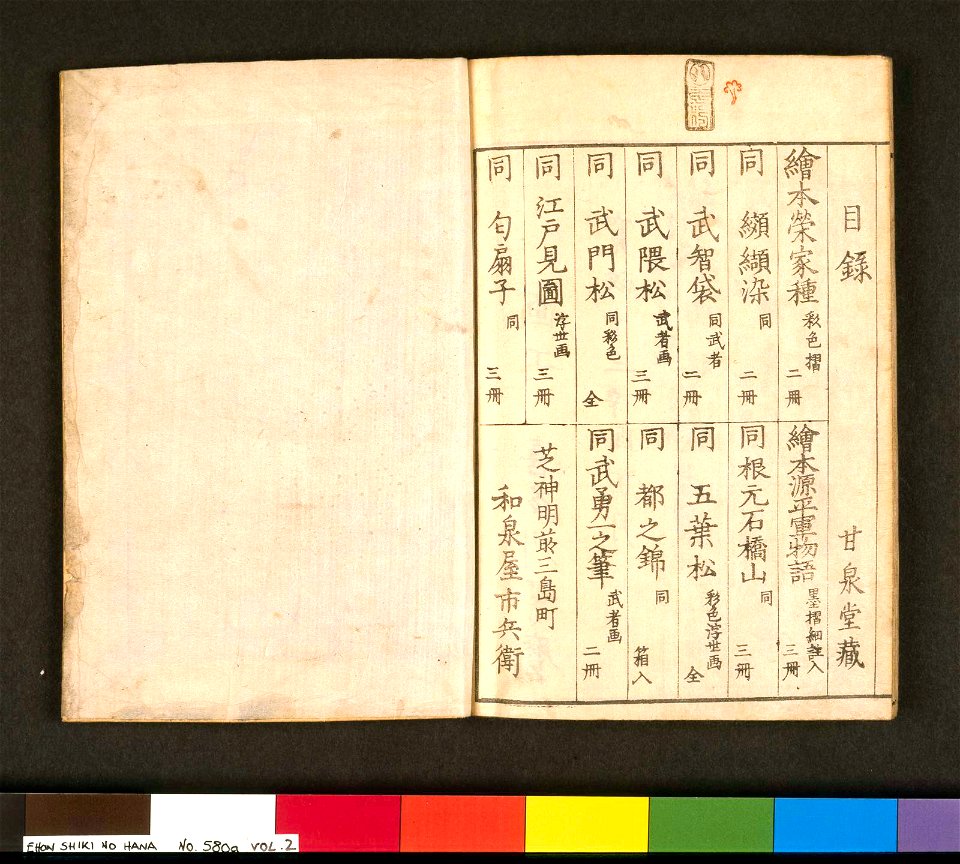 目録 甘泉堂藏
繪本榮家種 彩色摺 二冊
同 纐纈染 同 二冊
同 武智袋 同武者 二冊
同 武隈松 武者画 三冊
同 武門松 同彩色 全
同 江戸見圖 浮世画 三冊
同 匂扇子 同 三冊
繪本源平軍物語 墨摺細註入 三冊
同 根元石橋山 同 三冊
同 五葉松 彩色浮世画 全
同 都之錦 同 箱入
同 武勇一之筆 武者画 二冊
芝神明前三島町
和泉屋市兵衛
EHON SHIKI NO HANA No. 580a VOL.2